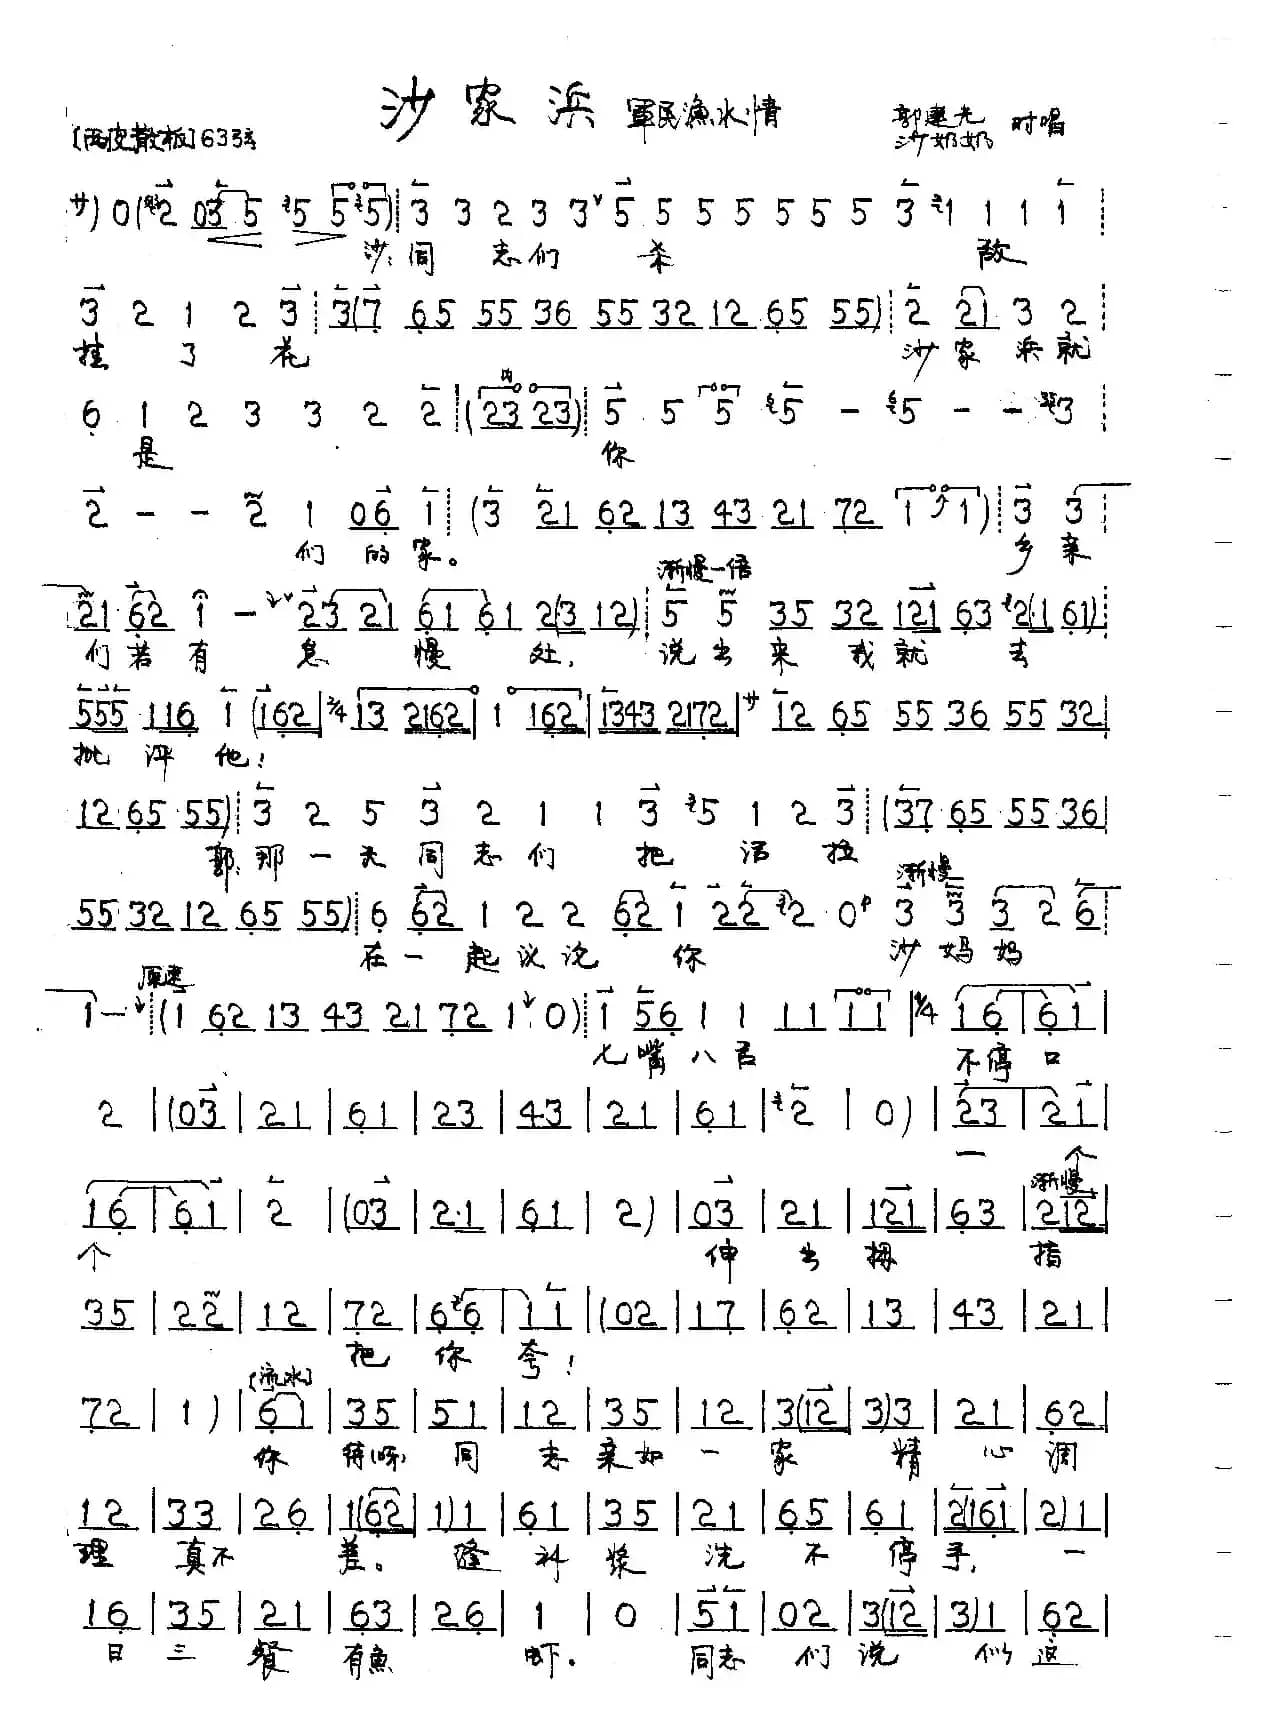 沙家浜 軍民漁水情
郭建光
沙奶奶 对唱
[西皮散板] 63弦
サ) 0 ( 2 03 5 5 5 5) 3 3 2 3 3 5 5 5 5 5 5 5 3 1 1 1 1
沙:同志们杀敌
3 2 1 2 3 3(7 65 55 36 55 32 12 65 55) 2 21 3 2
挂了花 沙家浜就
6 1 2 3 3 2 2 (23 23) 5 5 5 5 - 5 - - 3
是 你
2 - - 2 1 06 1 (3 21 62 13 43 21 72 1 1) 3 3
们的家。 乡亲
渐慢一倍
21 62 1 - 23 21 61 61 2(3 12) 5 5 35 32 121 63 2(1 61)
们若有怠慢处, 说出来我就去
555 116 1 (162 | 2/4 13 2162 | 1 162 | 1343 2172 | サ 12 65 55 36 55 32
批评他!
12 65 55) 3 2 5 3 2 1 1 3 5 1 2 3 (37 65 55 36
郭:那一天同志们把话拉
渐慢
55 32 12 65 55) 6 62 1 2 2 62 1 22 2 0 3 3 3 2 6
在一起议论你 沙妈妈
原速
1 - (1 62 13 43 21 72 1 0) 1 56 1 1 11 11 | 1/4 16 | 61 |
七嘴八舌 不停口
2 | (03 | 21 | 61 | 23 | 43 | 21 | 61 | 2 | 0) | 23 | 21 |
一个
渐慢
16 | 61 | 2 | (03 | 2·1 | 61 | 2) | 03 | 21 | 121 | 63 | 212 |
个 伸出拇指
35 | 22 | 12 | 72 | 66 | 11 | (02 | 17 | 62 | 13 | 43 | 21 |
把你夸!
[流水]
72 | 1) | 61 | 35 | 51 | 12 | 35 | 12 | 3(12 | 3)3 | 21 | 62 |
你待(呀)同志亲如一家精心调
12 | 33 | 26 | 1(62 | 1)1 | 61 | 35 | 21 | 65 | 61 | 2(161 | 2)1 |
理真不差。缝补浆洗不停手,一
16 | 35 | 21 | 63 | 26 | 1 | 0 | 51 | 02 | 3(12 | 3)1 | 62 |
日三餐有鱼虾。同志们说似这